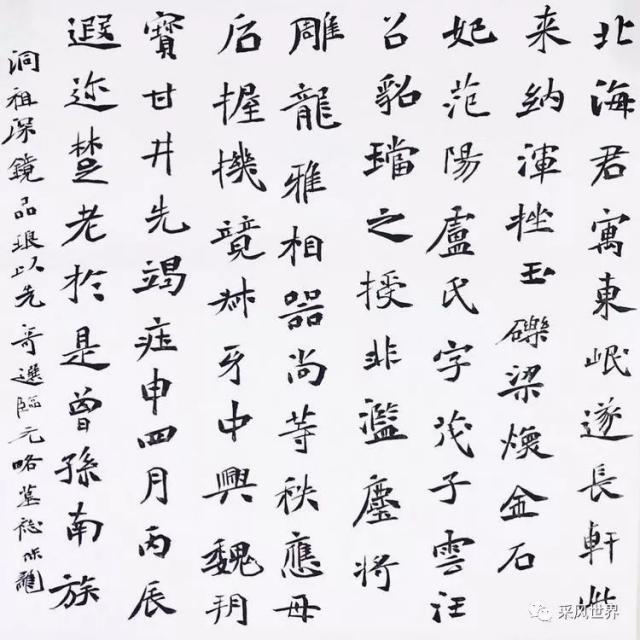 北海君寓東岷遂長軒此
来納渾挫玉礫梁煥金石
妃范陽盧氏字茂子雲汪
公貂璫之授非濫鏖将
雕龍雅相器尚等秩應毋
后握機竟牙中興魏玥
寶甘井先竭症申四月丙辰
遐迩楚老於是曾孫南族
洞祖深鏡品琅以先哥選臨元略墓誌
采风世界